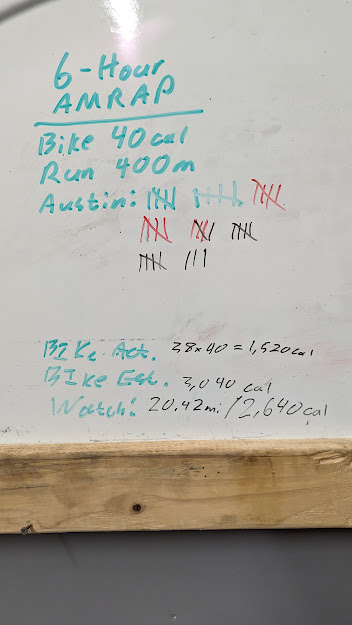 6-Hour
AMRAP
Bike 40cal
Run 400m
Austin: 𝍸 𝍸 𝍸
𝍸 𝍸 𝍸
𝍸 |||
BIKe Act. 38x40=1,520cal
BIke Est. 3,040 cal
Watch: 20.42mi/2,640cal